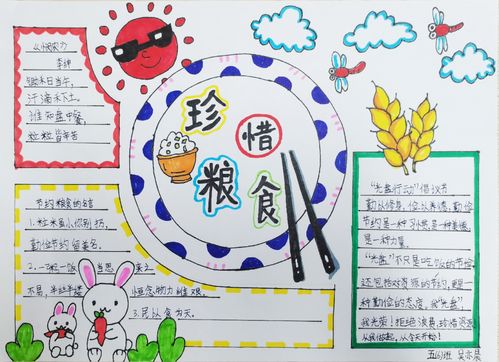 李绅
锄禾日当午,
汗滴禾下土。
谁知盘中餐,
粒粒皆辛苦
珍惜粮食
节约粮食的名言
1.粒米虽小你别扔,
勤俭节约留美名。
2.一粥一饭 当思 来之
不易,半丝半缕 恒念物力维艰。
3.民以食为天。
"光盘行动"倡议书
勤以修身,俭以养德,勤俭
节约是一种习惯,是一种美德,
是一种力量。
"光盘"不只是吃饭的节俭,
还包括对资源的节约,更是一
种勤俭的态度,我"光盘"
我光荣!拒绝浪费,珍惜资源
从我做起,从今天开始!